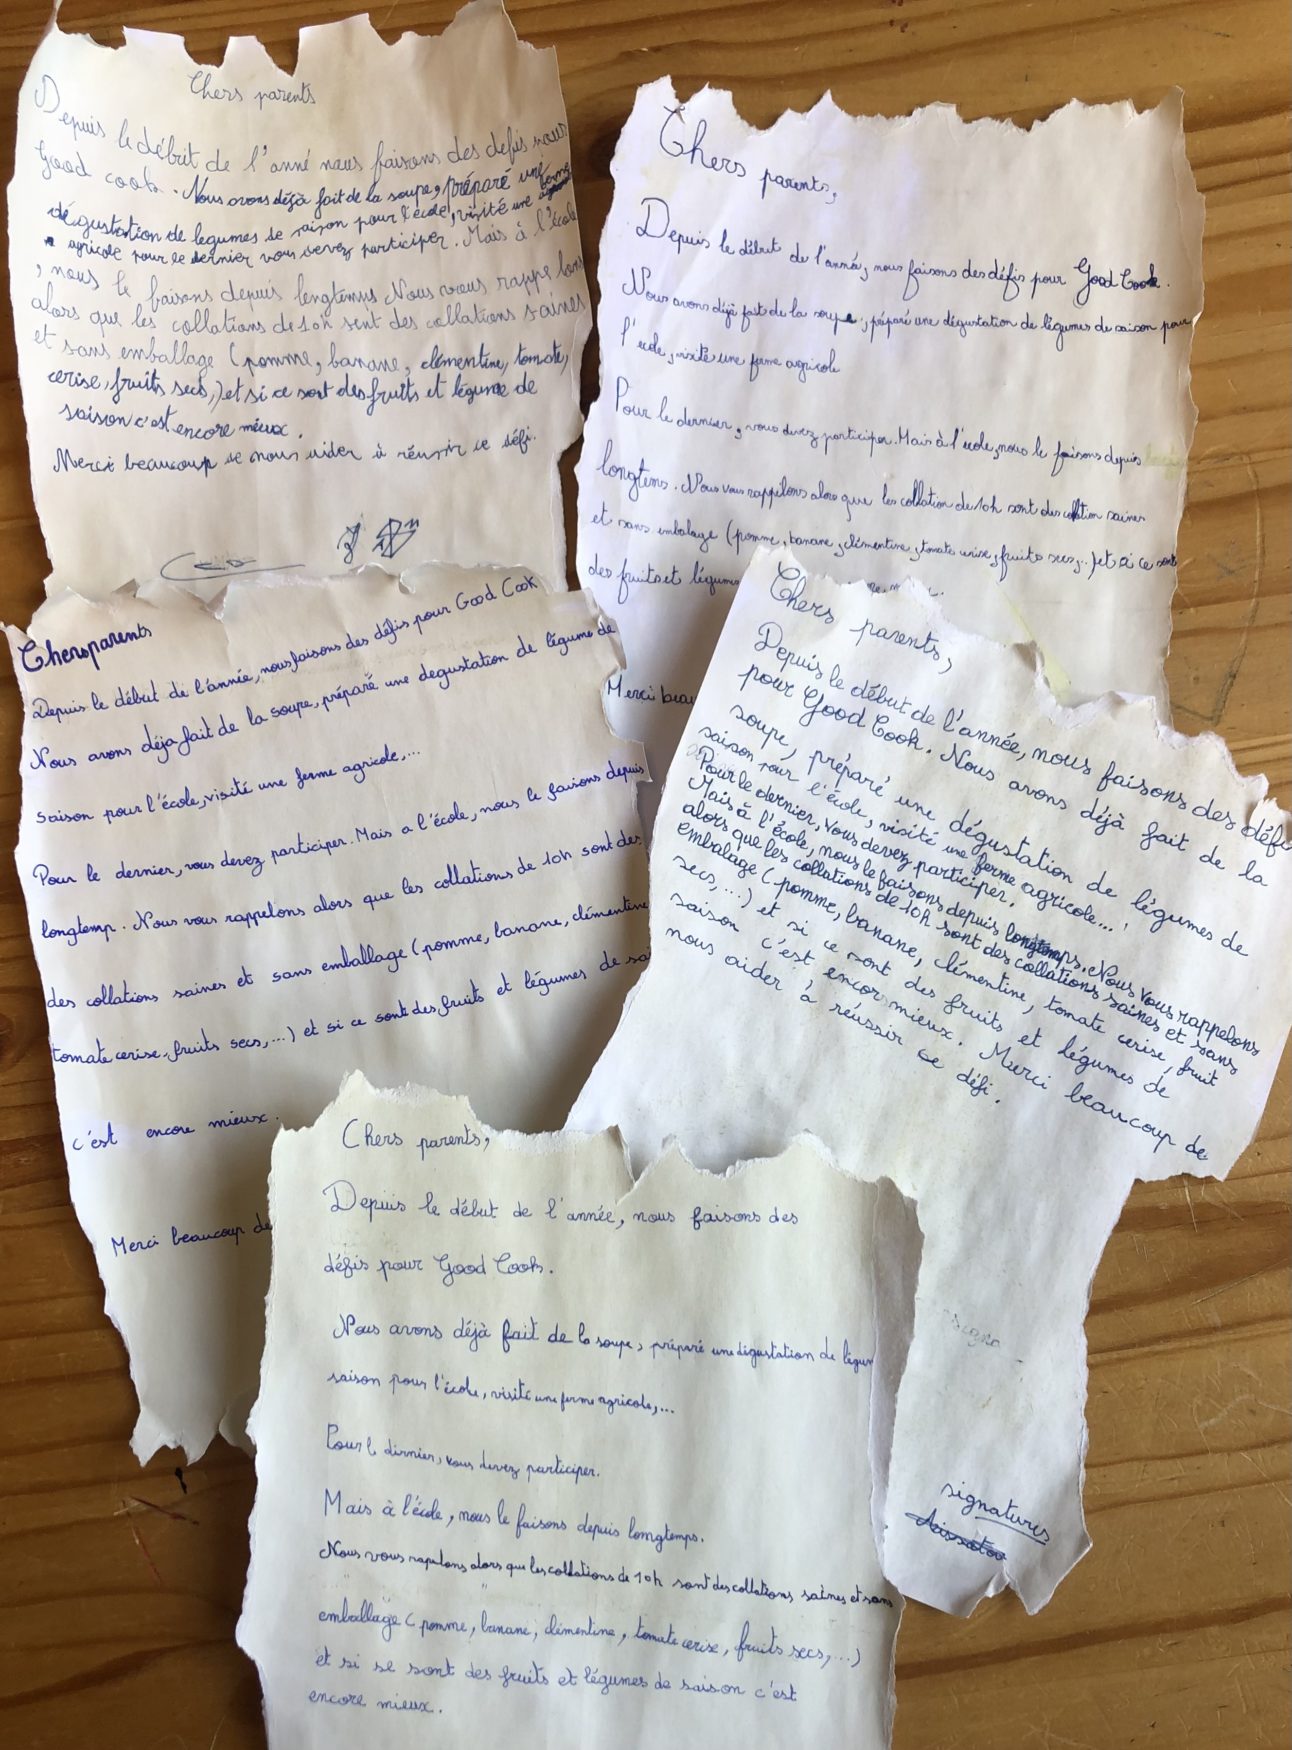 Chers parents
Depuis le débrit de l'anné naus faisons des defis nous
Good cook. Nous avons déjà fait de la soupe, préparé une
dégustation de legumes de saison pour l'école, visité une ferme
agricole pour le dernier vous devez participer. Mais à l'école
, nous le faisons depuis longtemps Nous vous rappelons
alors que les collations de 10h sont des collations saines
et sans emballage (pomme, banane, clémentine, tomate,
cerise, fruits secs,) et si ce sont des fruits et légume de
saison c'est encore mieux.
Merci beaucoup de nous aider à réussir ce défi.
Chers parents,
Depuis le début de l'année, nous faisons des défis pour Good Cook.
Nous avons déjà fait de la soupe, préparé une dégustation de légumes de saison pour
l'école, visité une ferme agricole
Pour le dernier, vous devez participer. Mais à l'école, nous le faisons depuis
longtens. Nous vous rappelons alors que les collation de 10h sont des collation saines
et sans embalage (pomme, banane, clémentine, tomate cerise, fruits secs,..) et si ce sont
des fruits et légumes
Merci beau
Chers parents
Depuis le début de l'année, nous faisons des défis pour Good Cook
Nous avons déja fait de la soupe, préparé une degustation de légume de
saison pour l'école, visité une ferme agricole,...
Pour le dernier, vous devez participer. Mais a l'école, nous le faisons depuis
longtemp. Nous vous rappelons alors que les collations de 10h sont des
des collations saines et sans emballage (pomme, banane, clémentine
tomate cerise, fruits secs,...) et si ce sont des fruits et légumes de sai
c'est encore mieux.
Merci beaucoup de
Chers parents,
Depuis le début de l'année, nous faisons des défi
pour Good Cook. Nous avons déjà fait de la
soupe, préparé une dégustation de légumes de
saison pour l'école, visité une ferme agricole...
Pour le dernier, vous devez participer.
Mais à l'école, nous le faisons depuis longtemps. Nous vous rappelons
alors que les collations de 10h sont des collations saines et sans
embalage (pomme, banane, clémentine, tomate cerise, fruit
secs,...) et si ce sont des fruits et légumes de
saison c'est encor mieux. Merci beaucoup de
nous aider à réussir ce défi.
signatures
Chers parents,
Depuis le début de l'année, nous faisons des
défis pour Good Cook.
Nous avons déjà fait de la soupe, préparé une dégustation de légum
saison pour l'école, visité une ferme agricole,...
Pour le dirnier, vous devez participer.
Mais à l'école, nous le faisons depuis longtemps.
Nous vous rapelons alors que les collations de 10h sont des collations saines et sans
emballage (pomme, banane, clémentine, tomate cerise, fruits secs,...)
et si se sont des fruits et légumes de saison c'est
encore mieux.